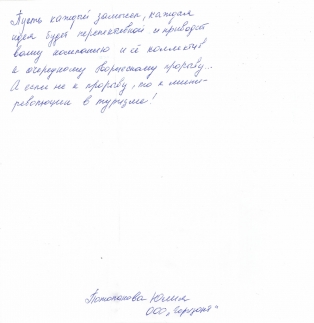 Пусть каждый замысел, каждая
идея будет перспективной и приводит
вашу компанию и её коллектив
к очередному творческому прорыву...
А если не к прорыву, то к мини-
революции в туризме!
Юлия
ООО „Горизонт"